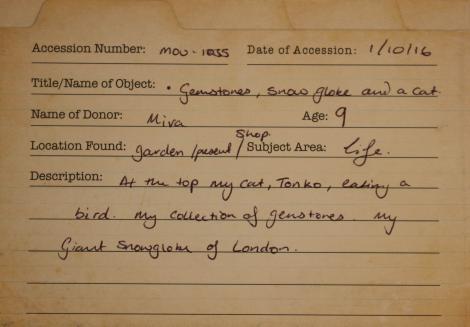 Accession Number: MOU-1035 Date of Accession: 1/10/16
Title/Name of Object: • Gemstones, snow globe and a cat.
Name of Donor: Miva Age: 9
Location Found: garden/present/shop Subject Area: Life.
Description: At the top my cat, Tonko, eating a
bird. My collection of gemstones. My
Giant Snowglobe of London.